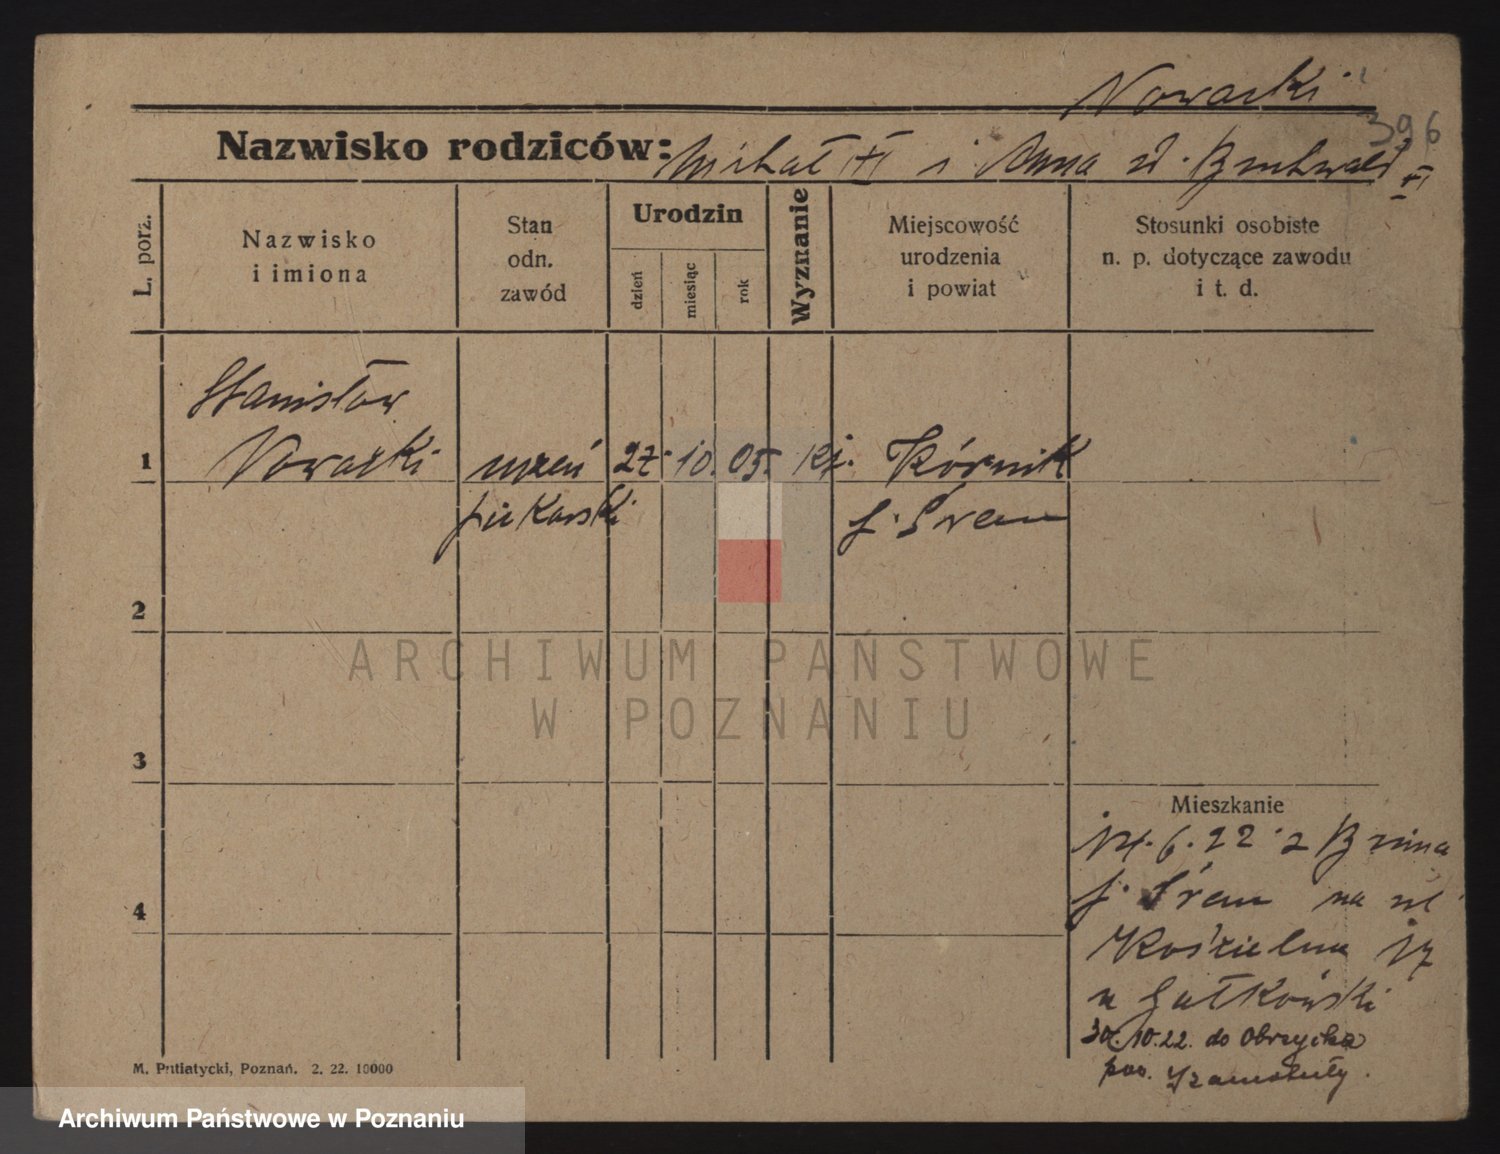 Nowacki
396
Nazwisko rodziców: Michał i Anna
L. porz.
Nazwisko
i imiona
Stan
odn.
zawód
Urodzin
dzień
miesiąc
rok
Wyznanie
Miejscowość
urodzenia
i powiat
Stosunki osobiste
n. p. dotyczące zawodu
i t. d.
Stanisław
1 Nowacki uczeń 27. 10. 05. Kórnik
piekarski p. Śrem
2
ARCHIWUM PAŃSTWOWE
W POZNANIU
3
Mieszkanie
6. 22 z Bnina
4 p. Śrem na ul
Kościelna 17
u
30. 10. 22. do Obrzycka
pow. Szamotuły.
M. Putiatycki, Poznań. 2. 22. 10000
Archiwum Państwowe w Poznaniu